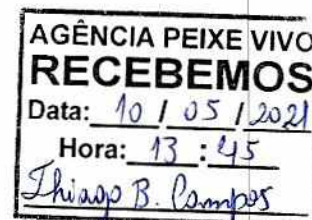 AGÊNCIA PEIXE VIVO
RECEBEMOS
Data: 10 / 05 / 2021
Hora: 13 : 45
Thiago B. Campos